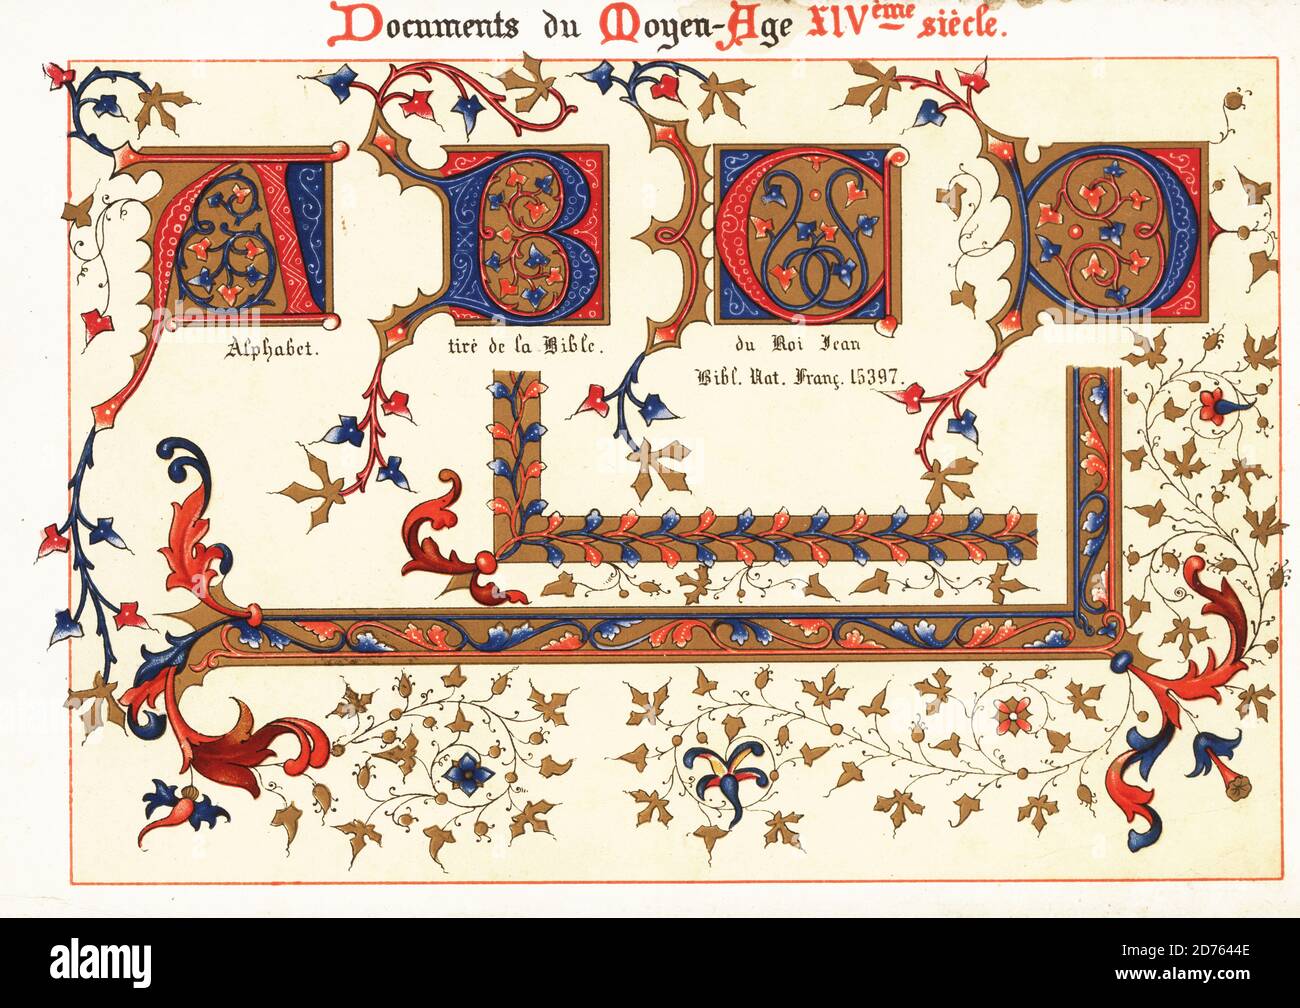 Documents du Moyen-Age XIVème siècle.
A B C D
Alphabet. tiré de la Bible. du Roi Jean
Bibl. Nat. Franç. 15397.
alamy
Image ID: 2D7644E
www.alamy.com